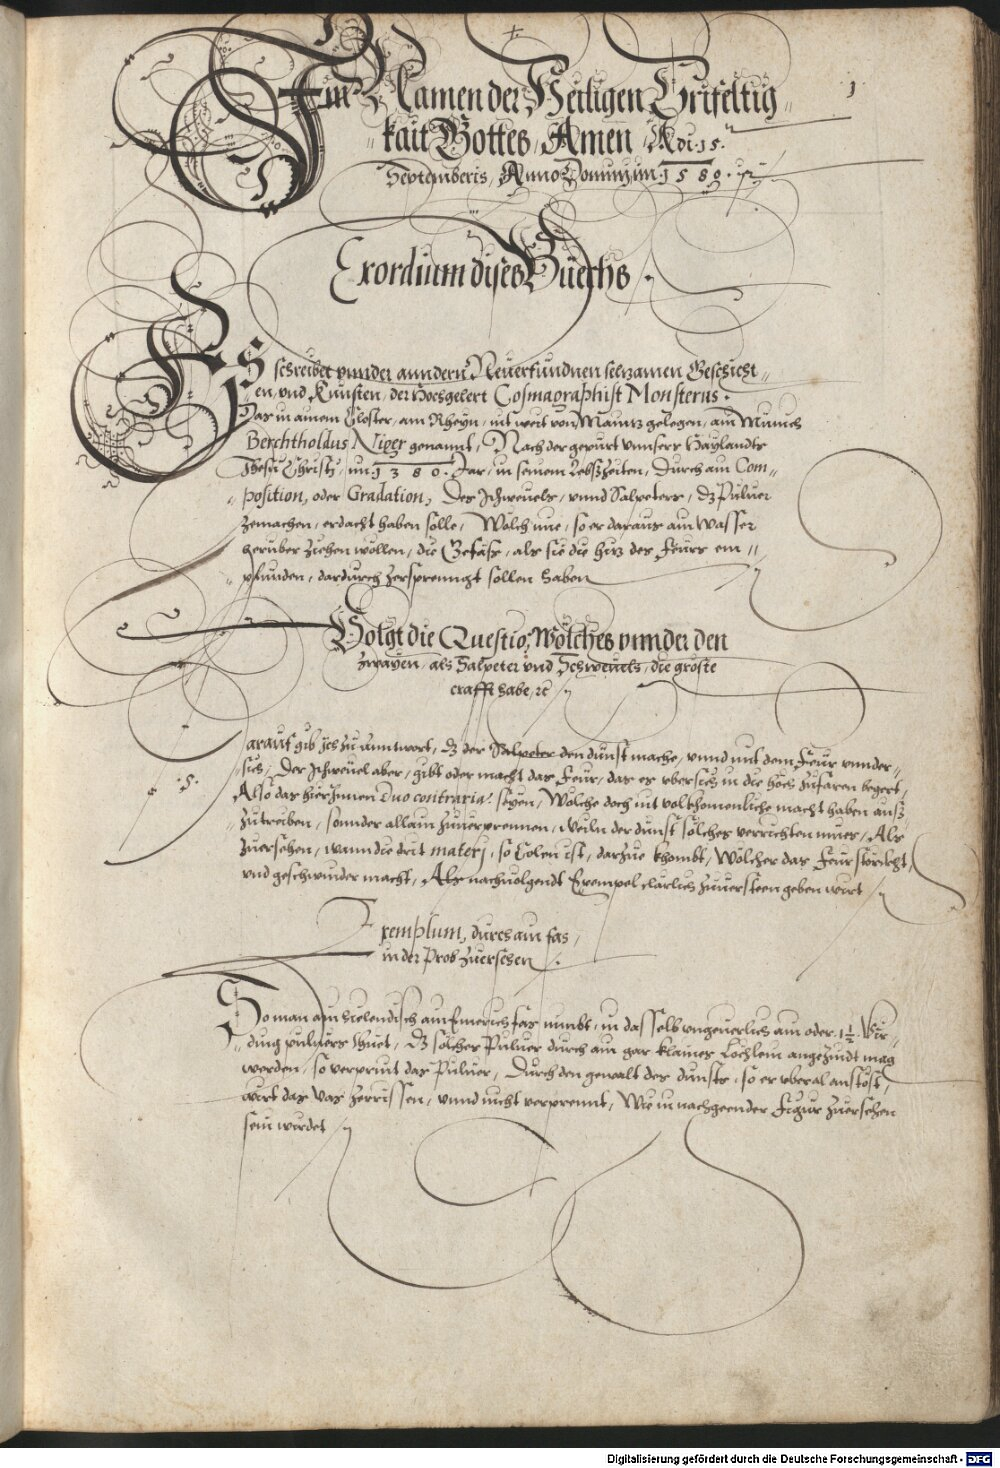 Im Namen der Heiligen Drifeltig„
„kait Gottes, Amen, Adi. 15.
Septembris, Anno Dominj im. 1580.
1
Exordium dises Buechs.
Es schreibet vnnder anndern Neuerfundnen selzamen Geschicht„
en, vnd Künsten, der Hochgelert Cosmographist Monsterus.
Das in ainem Closter, am Rheyn, nit weit von Maintz gelegen, ain Munich
Berchtholdus Niger genannt, Nach der gepurt vnnsers Haylandts
Jhesu Christj, im. 1380. Jar, in seinem Lebszeiten, Durch ain Com„
„position, oder Gradation, Des Schweuels, vnnd Salpeters, dz Puluer
zemachen, erdacht haben solle, Wölch nue, so er daraus ain Wasser
herüber ziehen wöllen, die Gefäß, als sie die hitz des Feurs em„
„pfunden, dardurch zersprenngt sollen haben
Volgt die Questio, Wölches vnnder den
zwayen, als Salpeter vnd Schweuels, die gröste
crafft habe, ꝛc
Darauf gib Ich zu Anntwort, Dz der Salpeter den dunst mache, vnnd mit dem Feur vnnder„
„sich, Der Schweuel aber, gibt oder macht das Feur, das er vbersich in die höch zufaren begert,
Also das hierInnen Duo contraria: seyen, Wölche doch nit volkhomenliche macht haben auß
zutreiben, sonnder allain zuuerprennen, weiln der dunst sölches verrichten mues, Als
zuersehen, wann die drit materj, so Colen ist, darzue khombt, Wölcher das Feur störckht,
vnd geschwinder macht, Als nachuolgendt Exempel clärlich zuuersteen geben wirt
Exemplum, durch ain fas,
in der Prob zuersehen.
So man ain Hielendisch ain Emerich fas nimbt, in dasselb vngeuerlich ain oder. 1½. Vir„
„ding puluers thuet, Dz sölches Puluer durch ain gar klaines Löchlein angezindt mag
werden, so verprint das Puluer, Durch den gewalt des dunsts, so er vberal anstöst,
wirt das Vas zerrissen, vnnd nicht verprennt, Wie in nachgeender Figur zuersehen
sein wirdet
Digitalisierung gefördert durch die Deutsche Forschungsgemeinschaft - DFG